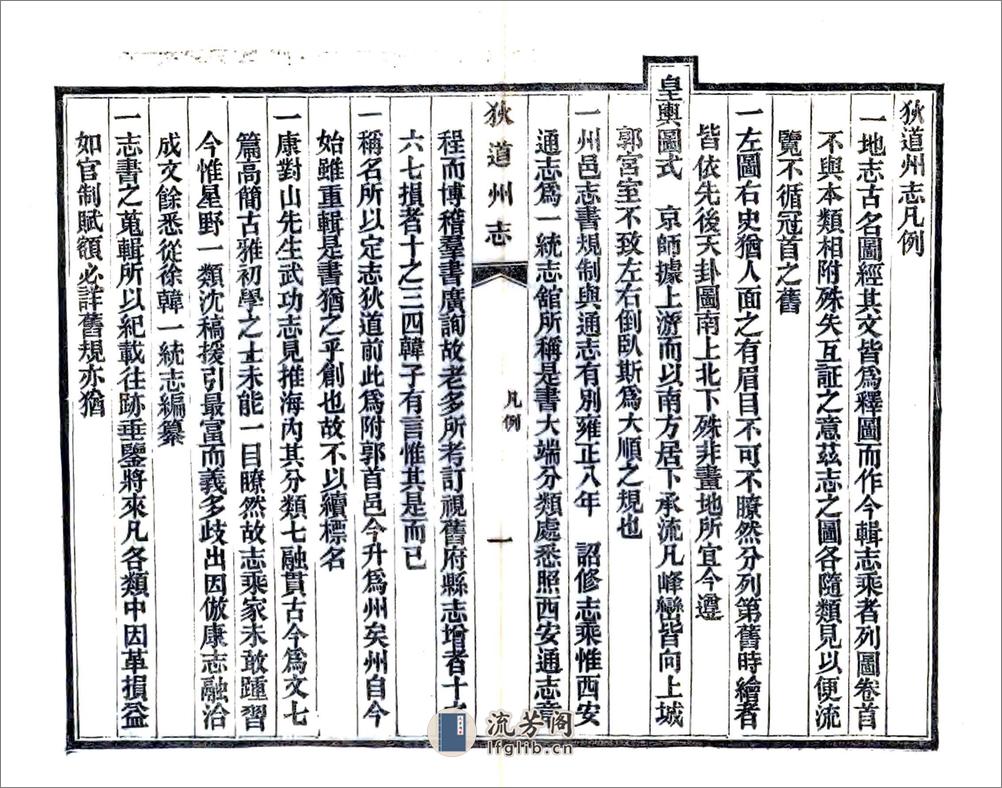 狄道州志凡例
一地志古名圖經其文皆爲釋圖而作今輯志乘者列圖卷首
不與本類相附殊失互証之意茲志之圖各隨類見以便流
覽不循冠首之舊
一左圖右史猶人面之有眉目不可不瞭然分列第舊時繪者
皆依先後天卦圖南上北下殊非畫地所宜今遵
皇輿圖式　京師據上游而以南方居下承流凡峰巒皆向上城
郭宮室不致左右倒臥斯爲大順之規也
一州邑志書規制與通志有別雍正八年　詔修志乘惟西安
通志爲一統志館所稱是書大端分類處悉照西安通志章
狄道州志
凡例
一
程而博稽羣書廣詢故老多所考訂視舊府縣志增者十之
六七損者十之三四韓子有言惟其是而已
一稱名所以定志狄道前此爲附郭首邑今升爲州矣州自今
始雖重輯是書猶之乎創也故不以續標名
一康對山先生武功志見推海內其分類七融貫古今爲文七
篇高簡古雅初學之士未能一目瞭然故志乘家未敢踵習
今惟星野一類沈稿援引最富而義多歧出因倣康志融洽
成文餘悉從徐韓一統志編纂
一志書之蒐輯所以紀載往跡垂鑒將來凡各類中因革損益
如官制賦額必詳舊規亦猶
流芳阁
lfglib.cn